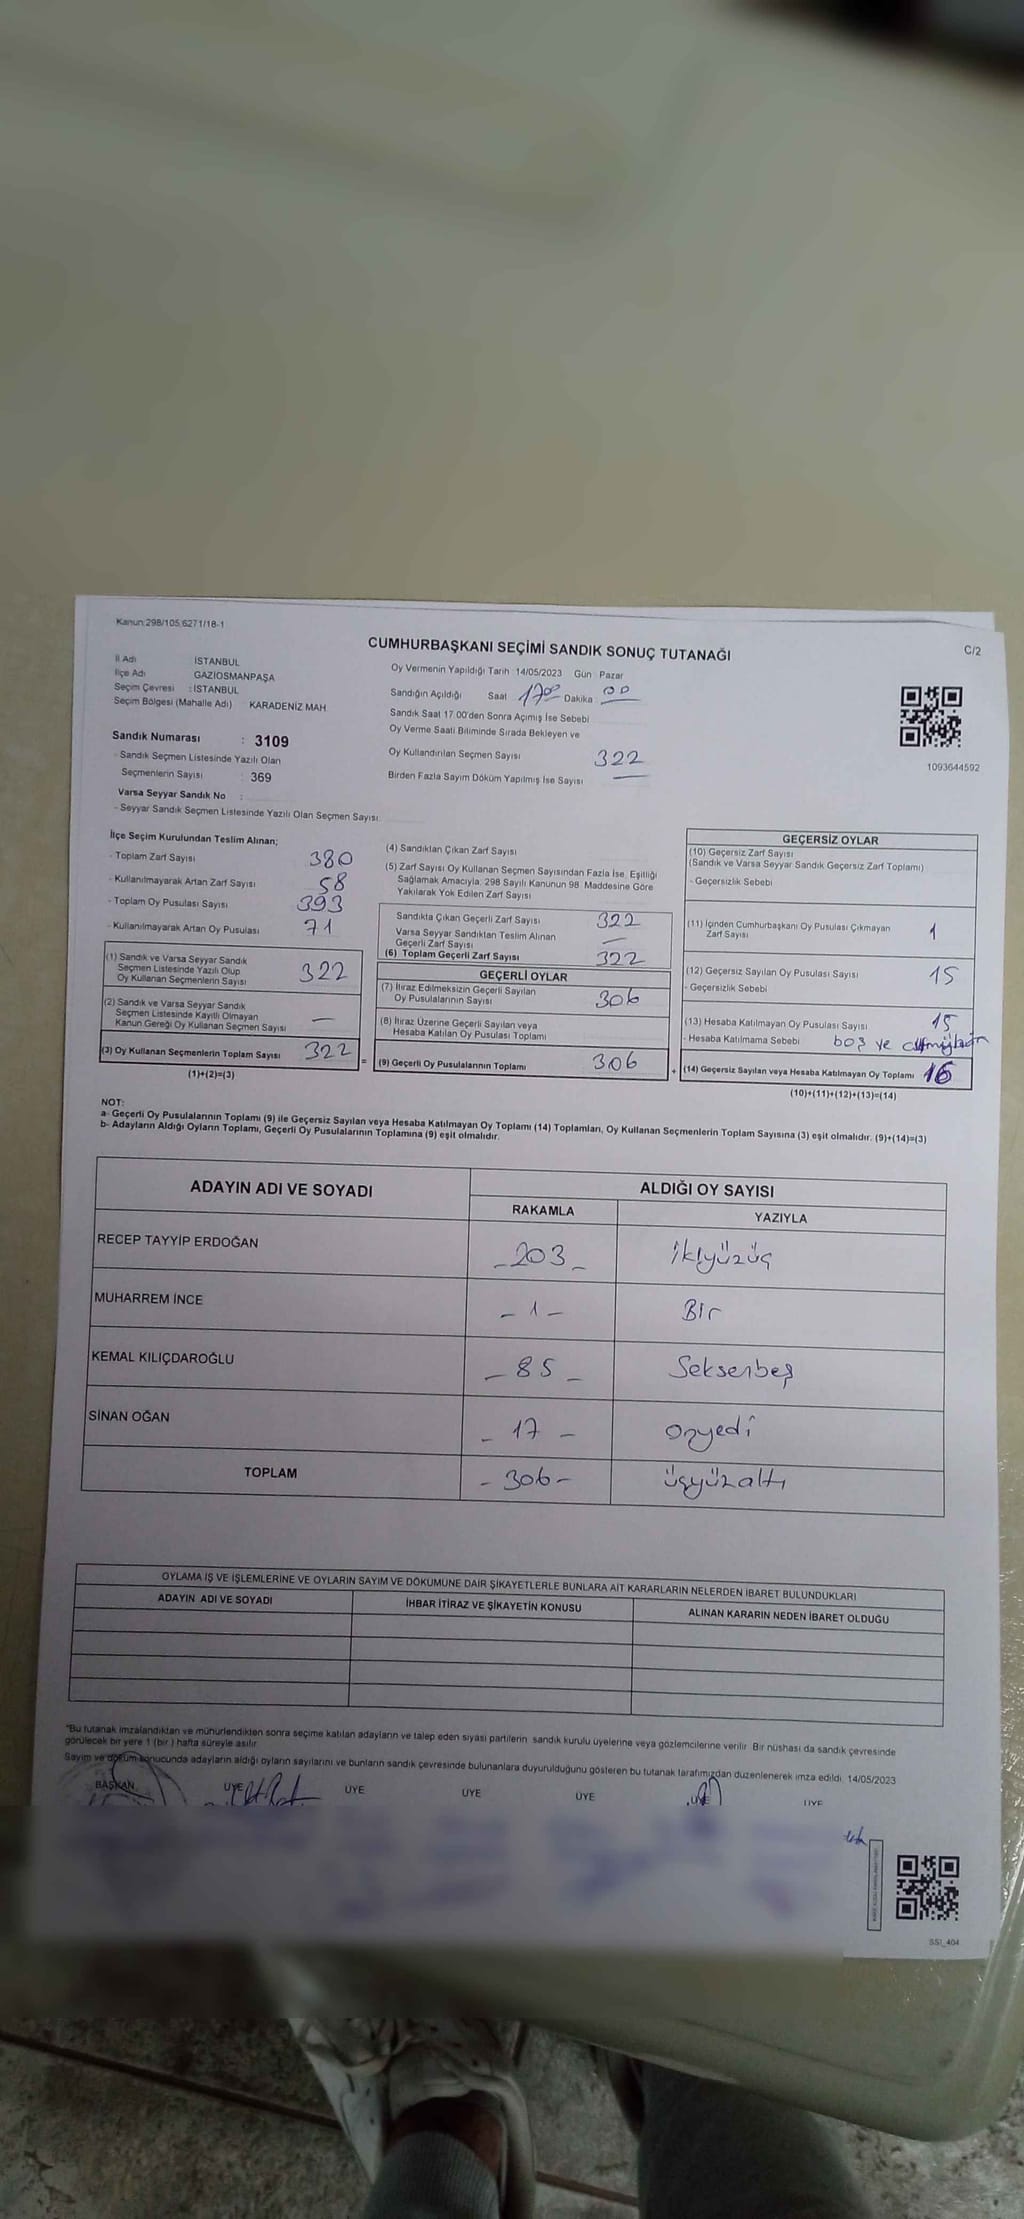 Kanun:298/105,6271/18-1
CUMHURBAŞKANI SEÇİMİ SANDIK SONUÇ TUTANAĞI
C/2
İl Adı İSTANBUL
İlçe Adı GAZİOSMANPAŞA
Seçim Çevresi : İSTANBUL
Seçim Bölgesi (Mahalle Adı) KARADENİZ MAH
Sandık Numarası : 3109
- Sandık Seçmen Listesinde Yazılı Olan
Seçmenlerin Sayısı : 369
Varsa Seyyar Sandık No :
- Seyyar Sandık Seçmen Listesinde Yazılı Olan Seçmen Sayısı
Oy Vermenin Yapıldığı Tarih :14/05/2023 Gün Pazar
Sandığın Açıldığı Saat 17 00 Dakika 00
Sandık Saat 17.00'den Sonra Açılmış İse Sebebi
Oy Verme Saati Bitiminde Sırada Bekleyen ve
Oy Kullandırılan Seçmen Sayısı 322
Birden Fazla Sayım Döküm Yapılmış İse Sayısı
1093644592
İlçe Seçim Kurulundan Teslim Alınan;
- Toplam Zarf Sayısı 380
- Kullanılmayarak Artan Zarf Sayısı 58
- Toplam Oy Pusulası Sayısı 393
- Kullanılmayarak Artan Oy Pusulası 71
(1) Sandık ve Varsa Seyyar Sandık
Seçmen Listesinde Yazılı Olup
Oy Kullanan Seçmenlerin Sayısı 322
(2) Sandık ve Varsa Seyyar Sandık
Seçmen Listesinde Kayıtlı Olmayan
Kanun Gereği Oy Kullanan Seçmen Sayısı —
(3) Oy Kullanan Seçmenlerin Toplam Sayısı 322
(1)+(2)=(3)
=
(4) Sandıktan Çıkan Zarf Sayısı
(5) Zarf Sayısı Oy Kullanan Seçmen Sayısından Fazla İse, Eşitliği
Sağlamak Amacıyla, 298 Sayılı Kanunun 98. Maddesine Göre
Yakılarak Yok Edilen Zarf Sayısı
Sandıkta Çıkan Geçerli Zarf Sayısı 322
Varsa Seyyar Sandıktan Teslim Alınan
Geçerli Zarf Sayısı —
(6) Toplam Geçerli Zarf Sayısı 322
GEÇERLİ OYLAR
(7) İtiraz Edilmeksizin Geçerli Sayılan
Oy Pusulalarının Sayısı 306
(8) İtiraz Üzerine Geçerli Sayılan veya
Hesaba Katılan Oy Pusulası Toplamı
(9) Geçerli Oy Pusulalarının Toplamı 306
+
GEÇERSİZ OYLAR
(10) Geçersiz Zarf Sayısı
(Sandık ve Varsa Seyyar Sandık Geçersiz Zarf Toplamı)
- Geçersizlik Sebebi
(11) İçinden Cumhurbaşkanı Oy Pusulası Çıkmayan
Zarf Sayısı 1
(12) Geçersiz Sayılan Oy Pusulası Sayısı 15
- Geçersizlik Sebebi
(13) Hesaba Katılmayan Oy Pusulası Sayısı 15
- Hesaba Katılmama Sebebi boş ve
(14) Geçersiz Sayılan veya Hesaba Katılmayan Oy Toplamı 16
(10)+(11)+(12)+(13)=(14)
NOT:
a- Geçerli Oy Pusulalarının Toplamı (9) ile Geçersiz Sayılan veya Hesaba Katılmayan Oy Toplamı (14) Toplamları, Oy Kullanan Seçmenlerin Toplam Sayısına (3) eşit olmalıdır. (9)+(14)=(3)
b- Adayların Aldığı Oyların Toplamı, Geçerli Oy Pusulalarının Toplamına (9) eşit olmalıdır.
ADAYIN ADI VE SOYADI ALDIĞI OY SAYISI
RAKAMLA YAZIYLA
RECEP TAYYİP ERDOĞAN - 203 - ikiyüzüç
MUHARREM İNCE - 1 - Bir
KEMAL KILIÇDAROĞLU - 85 - Seksenbeş
SİNAN OĞAN - 17 - onyedi
TOPLAM - 306 - üçyüzaltı
OYLAMA İŞ VE İŞLEMLERİNE VE OYLARIN SAYIM VE DÖKÜMÜNE DAİR ŞİKAYETLERLE BUNLARA AİT KARARLARIN NELERDEN İBARET BULUNDUKLARI
ADAYIN ADI VE SOYADI İHBAR İTİRAZ VE ŞİKAYETİN KONUSU ALINAN KARARIN NEDEN İBARET OLDUĞU
*Bu tutanak imzalandıktan ve mühürlendikten sonra seçime katılan adayların ve talep eden siyasi partilerin sandık kurulu üyelerine veya gözlemcilerine verilir. Bir nüshası da sandık çevresinde
görülecek bir yere 1 (bir) hafta süreyle asılır.
Sayım ve döküm sonucunda adayların aldığı oyların sayılarını ve bunların sandık çevresinde bulunanlara duyurulduğunu gösteren bu tutanak tarafımızdan düzenlenerek imza edildi. 14/05/2023
BAŞKAN ÜYE ÜYE ÜYE ÜYE ÜYE ÜYE
SS1_404